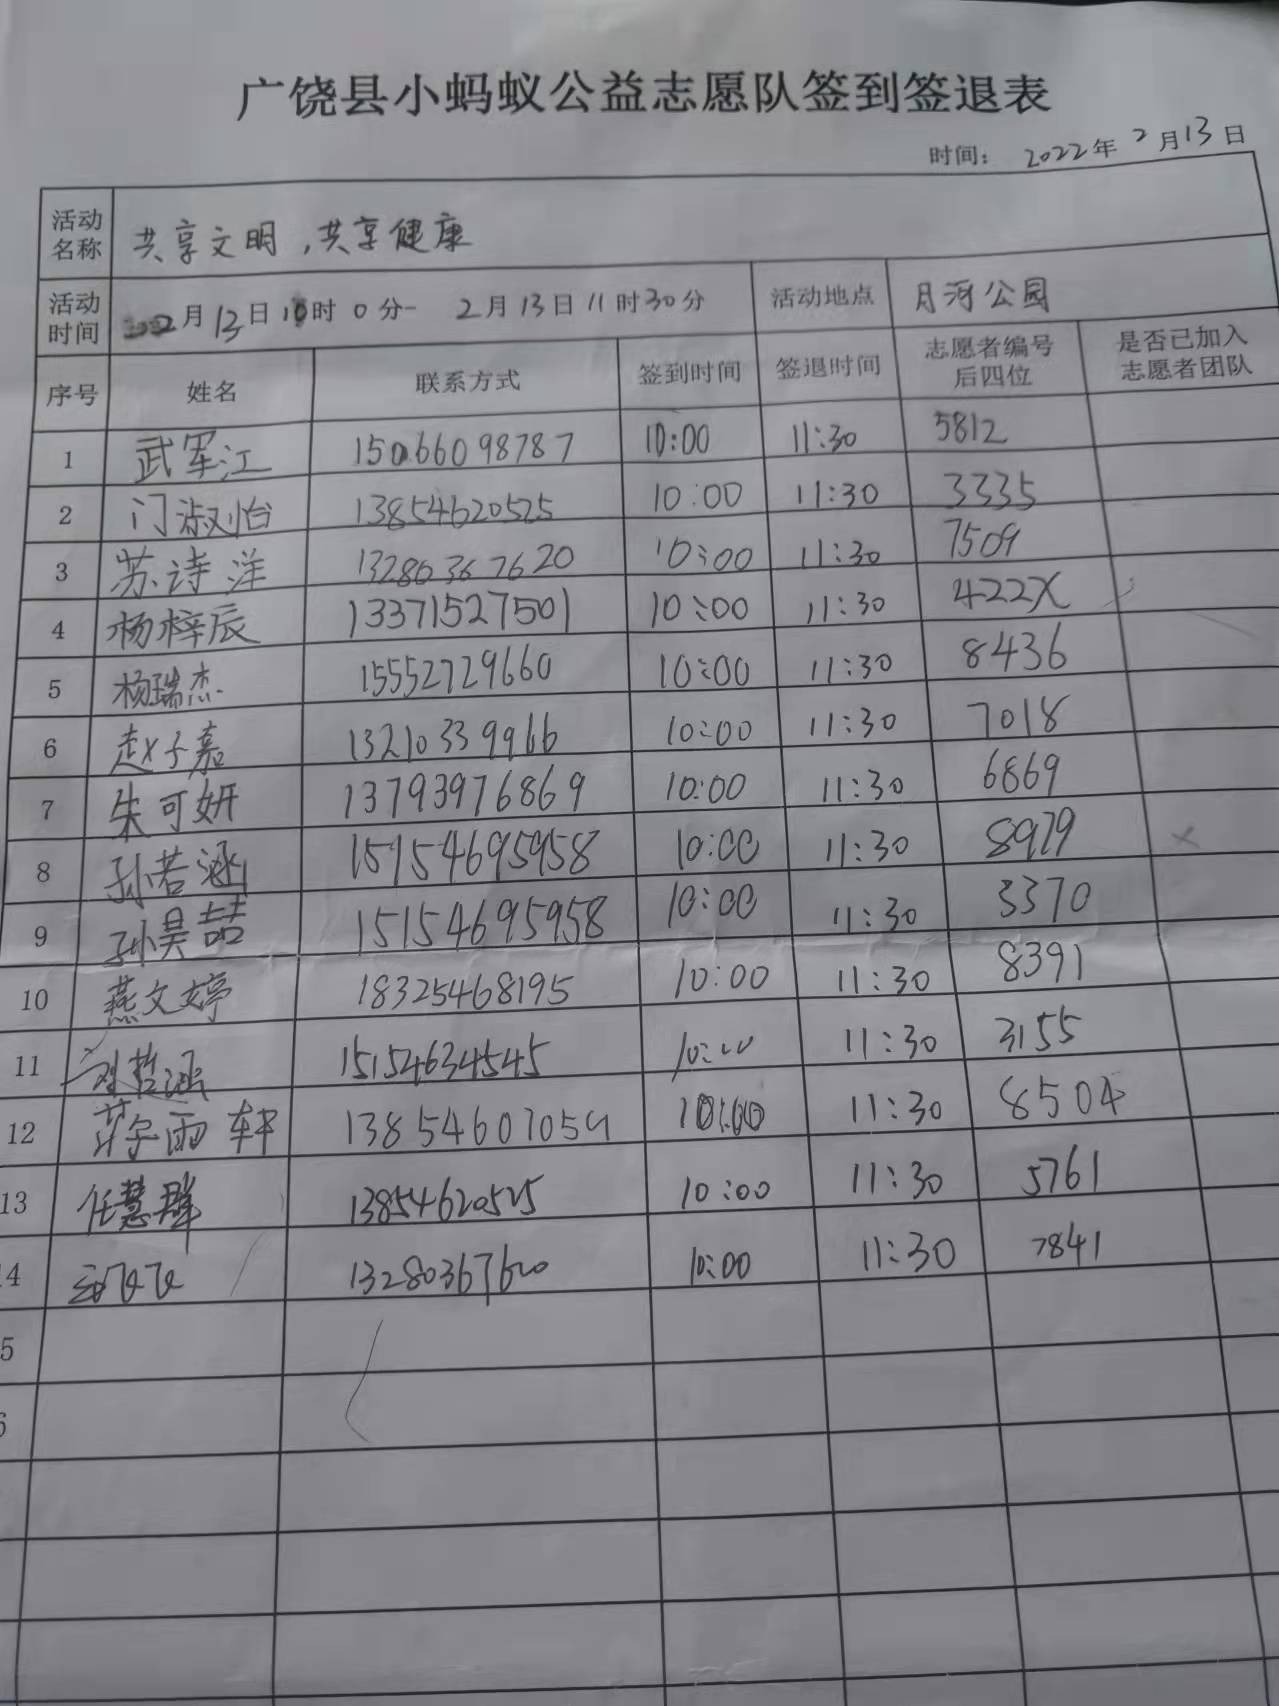 广饶县小蚂蚁公益志愿队签到签退表
时间： 2022年 2月13日
活动名称 共享文明，共享健康
活动时间 2月13日10时0分- 2月13日11时30分 活动地点 月河公园
序号 姓名 联系方式 签到时间 签退时间 志愿者编号后四位 是否已加入志愿者团队
1 武军江 15066098787 10:00 11:30 5812
2 门淑怡 13854620525 10:00 11:30 3335
3 苏诗洋 13280367620 10:00 11:30 7509
4 杨梓辰 13371527501 10:00 11:30 422X
5 杨瑞杰 15552729660 10:00 11:30 8436
6 赵子嘉 13210339966 10:00 11:30 7018
7 朱可妍 13793976869 10:00 11:30 6869
8 孙若涵 15154695958 10:00 11:30 8979
9 孙昊喆 15154695958 10:00 11:30 3370
10 燕文婷 18325468195 10:00 11:30 8391
11 刘哲涵 15154634545 10:00 11:30 3155
12 雨轩 13854607054 10:00 11:30 8504
13 任慧群 13854620525 10:00 11:30 5761
4 13280367620 10:00 11:30 7841
5
6